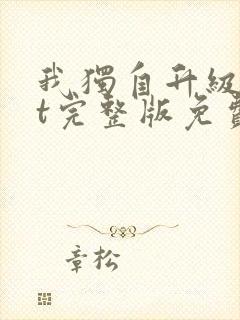 我獨自升級
t完整版免費
章松